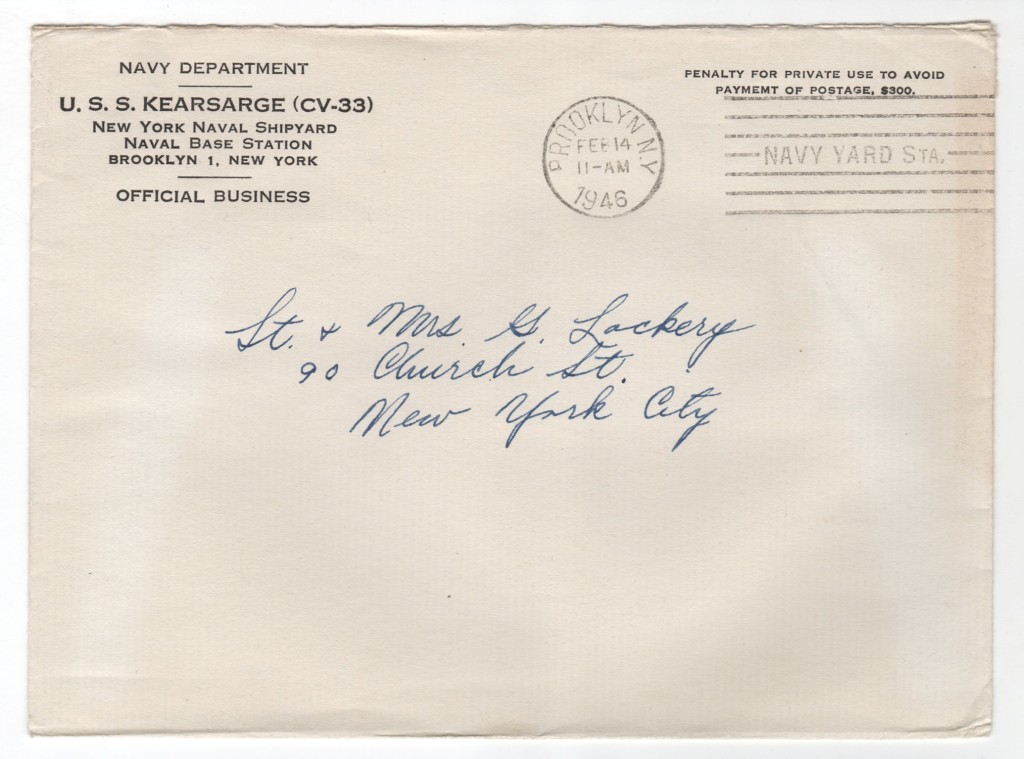 NAVY DEPARTMENT
U. S. S. KEARSARGE (CV-33)
NEW YORK NAVAL SHIPYARD
NAVAL BASE STATION
BROOKLYN 1, NEW YORK
OFFICIAL BUSINESS
PENALTY FOR PRIVATE USE TO AVOID
PAYMEMT OF POSTAGE, $300.
BROOKLYN N.Y
FEB 14
11-AM
1946
NAVY YARD STA.
Lt. & Mrs. G. Lackery
90 Church St.
New York City